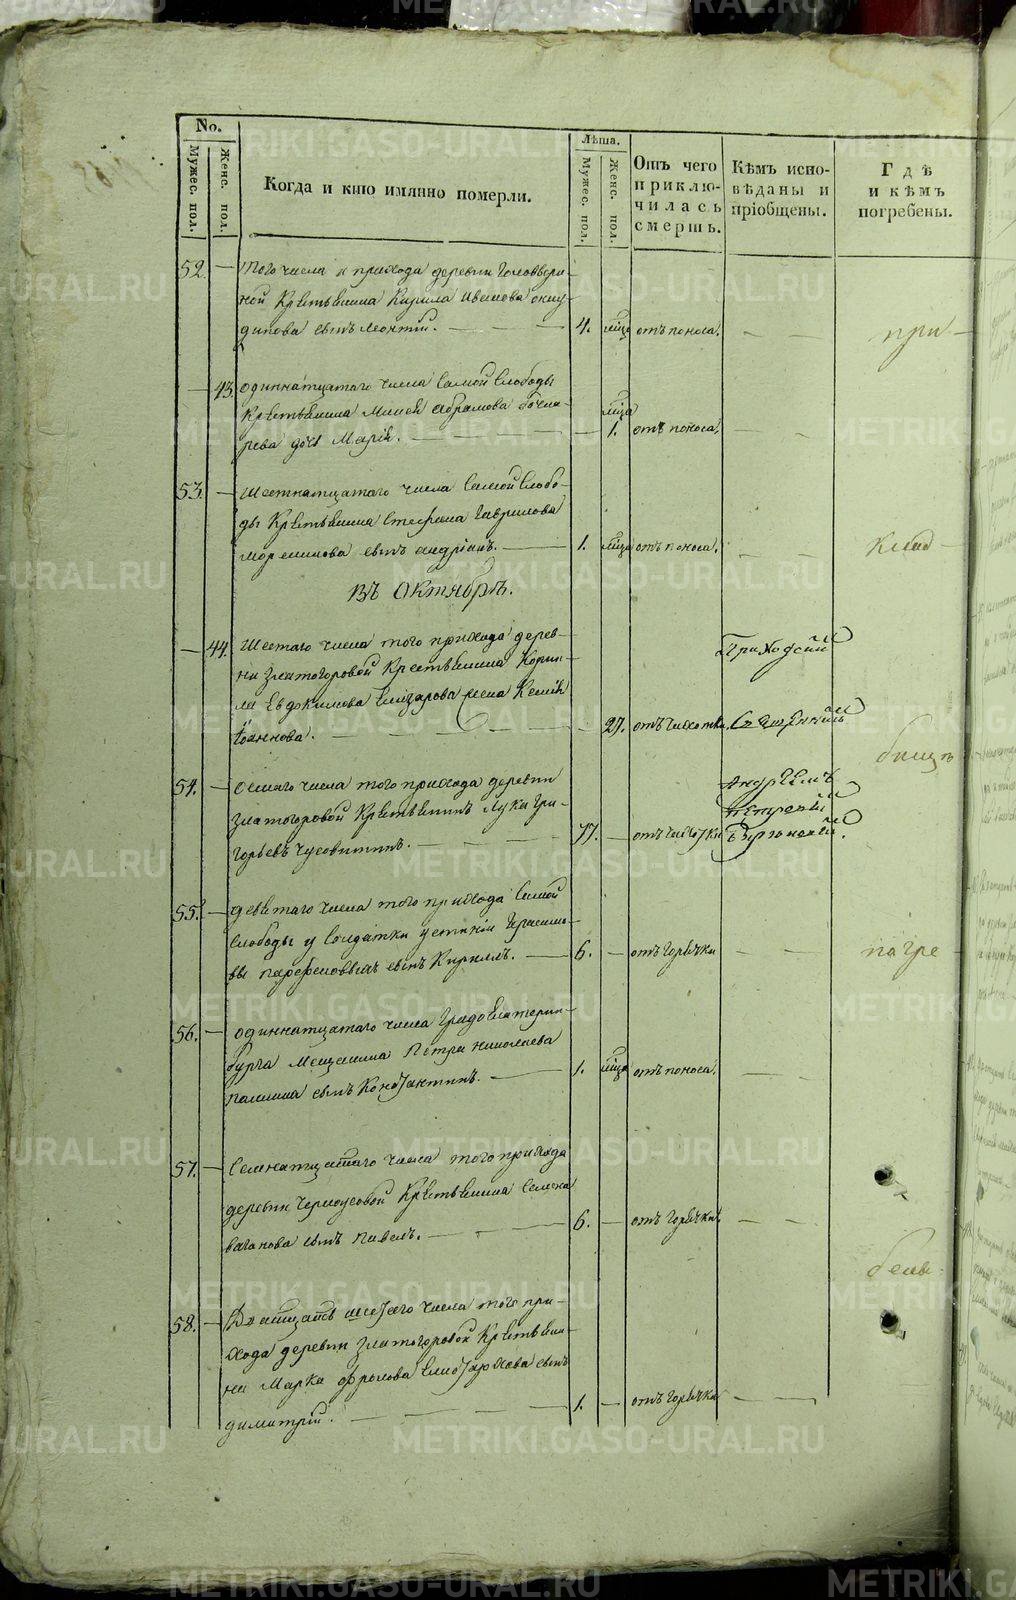 No.
Мужес. пол.
Женс. пол.
Когда и кто имянно померли.
Лѣта.
Мужес. пол.
Женс. пол.
Отъ чего
приклю-
чилась
смерть.
Кѣмъ испо-
вѣданы и
прiобщены.
Гдѣ
и кѣмъ
погребены.
52. того числа прихода деревни
ной Крестьянина Кирила Иванова
сынъ Леонтiй. 4. отъ поноса. при
43. одиннатцатаго числа Самой Слободы
Крестьянина Абрамова
дочь Марiя. 1. отъ поноса.
53. Шестнатцатаго числа Самой Слобо-
ды Крестьянина Стефана Гаврилова
сынъ Андрiанъ. 1. отъ поноса. клад
въ Октябрѣ.
44. Шестаго числа того прихода дерев-
ни Златогоровой Крестьянина Корни-
ла Евдокимова Елизарова жена Ксенiя
Iоаннова. 27. отъ чахотки.
Приходскiй
Священникъ
бищѣ
54. седмаго числа того прихода деревни
Златогоровой Крестьянинъ Лука Гри-
горьевъ Чусовитинъ. 77. отъ чахотки
Андрей
Петровъ
55. девятаго числа того прихода Самой
Слободы у Солдатки Устинiи Герасимо-
вы Парфеновыхъ сынъ Кириллъ. 6. отъ Горячки погре
56. одиннатцатаго числа Градоекатерин-
бурга Мещанина Петра Николаева
сынъ Константинъ. 1. отъ поноса.
57. Семнатцатаго числа того прихода
деревни Черноусовой Крестьянина Семена
Ваганова сынъ Павелъ. 6. отъ Горячки.
бены.
58. Дватцать шестаго числа того при-
хода деревни Златогоровой Крестьяни-
на Марка Фролова Елистархова сынъ
Димитрiй. 1. отъ Горячки
METRIKI.GASO-URAL.RU